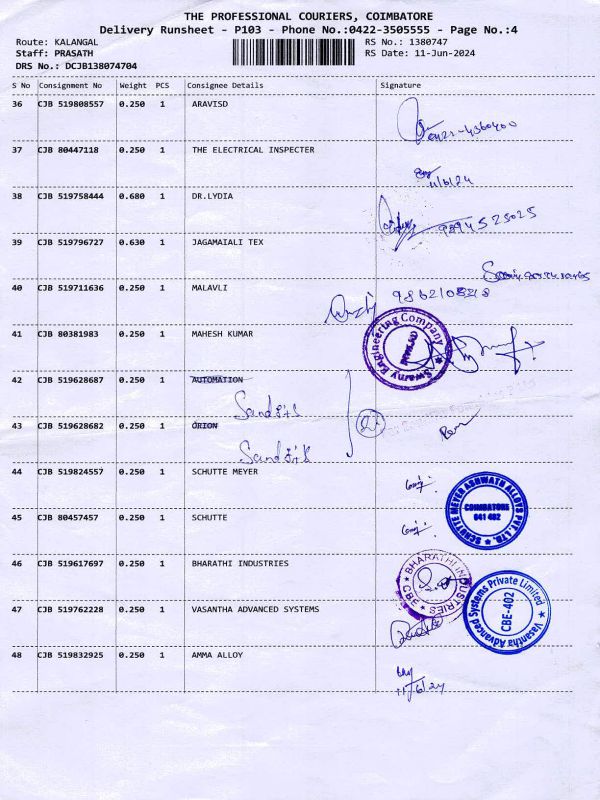 THE PROFESSIONAL COURIERS, COIMBATORE
Delivery Runsheet - P103 - Phone No.:0422-3505555 - Page No.:4
Route: KALANGAL RS No.: 1380747
Staff: PRASATH RS Date: 11-Jun-2024
DRS No.: DCJB138074704
S No Consignment No Weight PCS Consignee Details Signature
36 CJB 519808557 0.250 1 ARAVISD
0422-4360400
37 CJB 80447118 0.250 1 THE ELECTRICAL INSPECTER
11/6/24
38 CJB 519758444 0.680 1 DR.LYDIA
9894525025
39 CJB 519796727 0.630 1 JAGAMAIALI TEX
40 CJB 519711636 0.250 1 MALAVLI
41 CJB 80381983 0.250 1 MAHESH KUMAR
Swarny Engineering Company
42 CJB 519628687 0.250 1 AUTOMATION
Sandvik
43 CJB 519628682 0.250 1 ORION
2
Sandvik
44 CJB 519824557 0.250 1 SCHUTTE MEYER
SCHUTTE MEYER ASHWATH ALLOYS PVT. LTD.
COIMBATORE
641 402
45 CJB 80457457 0.250 1 SCHUTTE
46 CJB 519617697 0.250 1 BHARATHI INDUSTRIES
BHARATHI INDUSTRIES
CBE
47 CJB 519762228 0.250 1 VASANTHA ADVANCED SYSTEMS
Vasantha Advanced Systems Private Limited
CBE-402
48 CJB 519832925 0.250 1 AMMA ALLOY
11/6/24